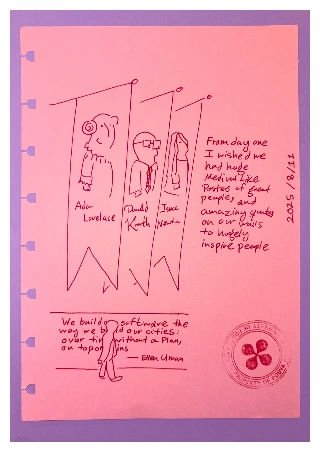 Ada
Lovelace
Donald
Knuth
From day one
I wished we
had huge
Medival like
Postes of great
people, and
amazing quotes
on our walls
to hugely
inspire people
2025/8/11
We build software the
way we build our cities:
over time, without a plan,
on top of ruins
— Ellen Ullman
PROPERTY OF